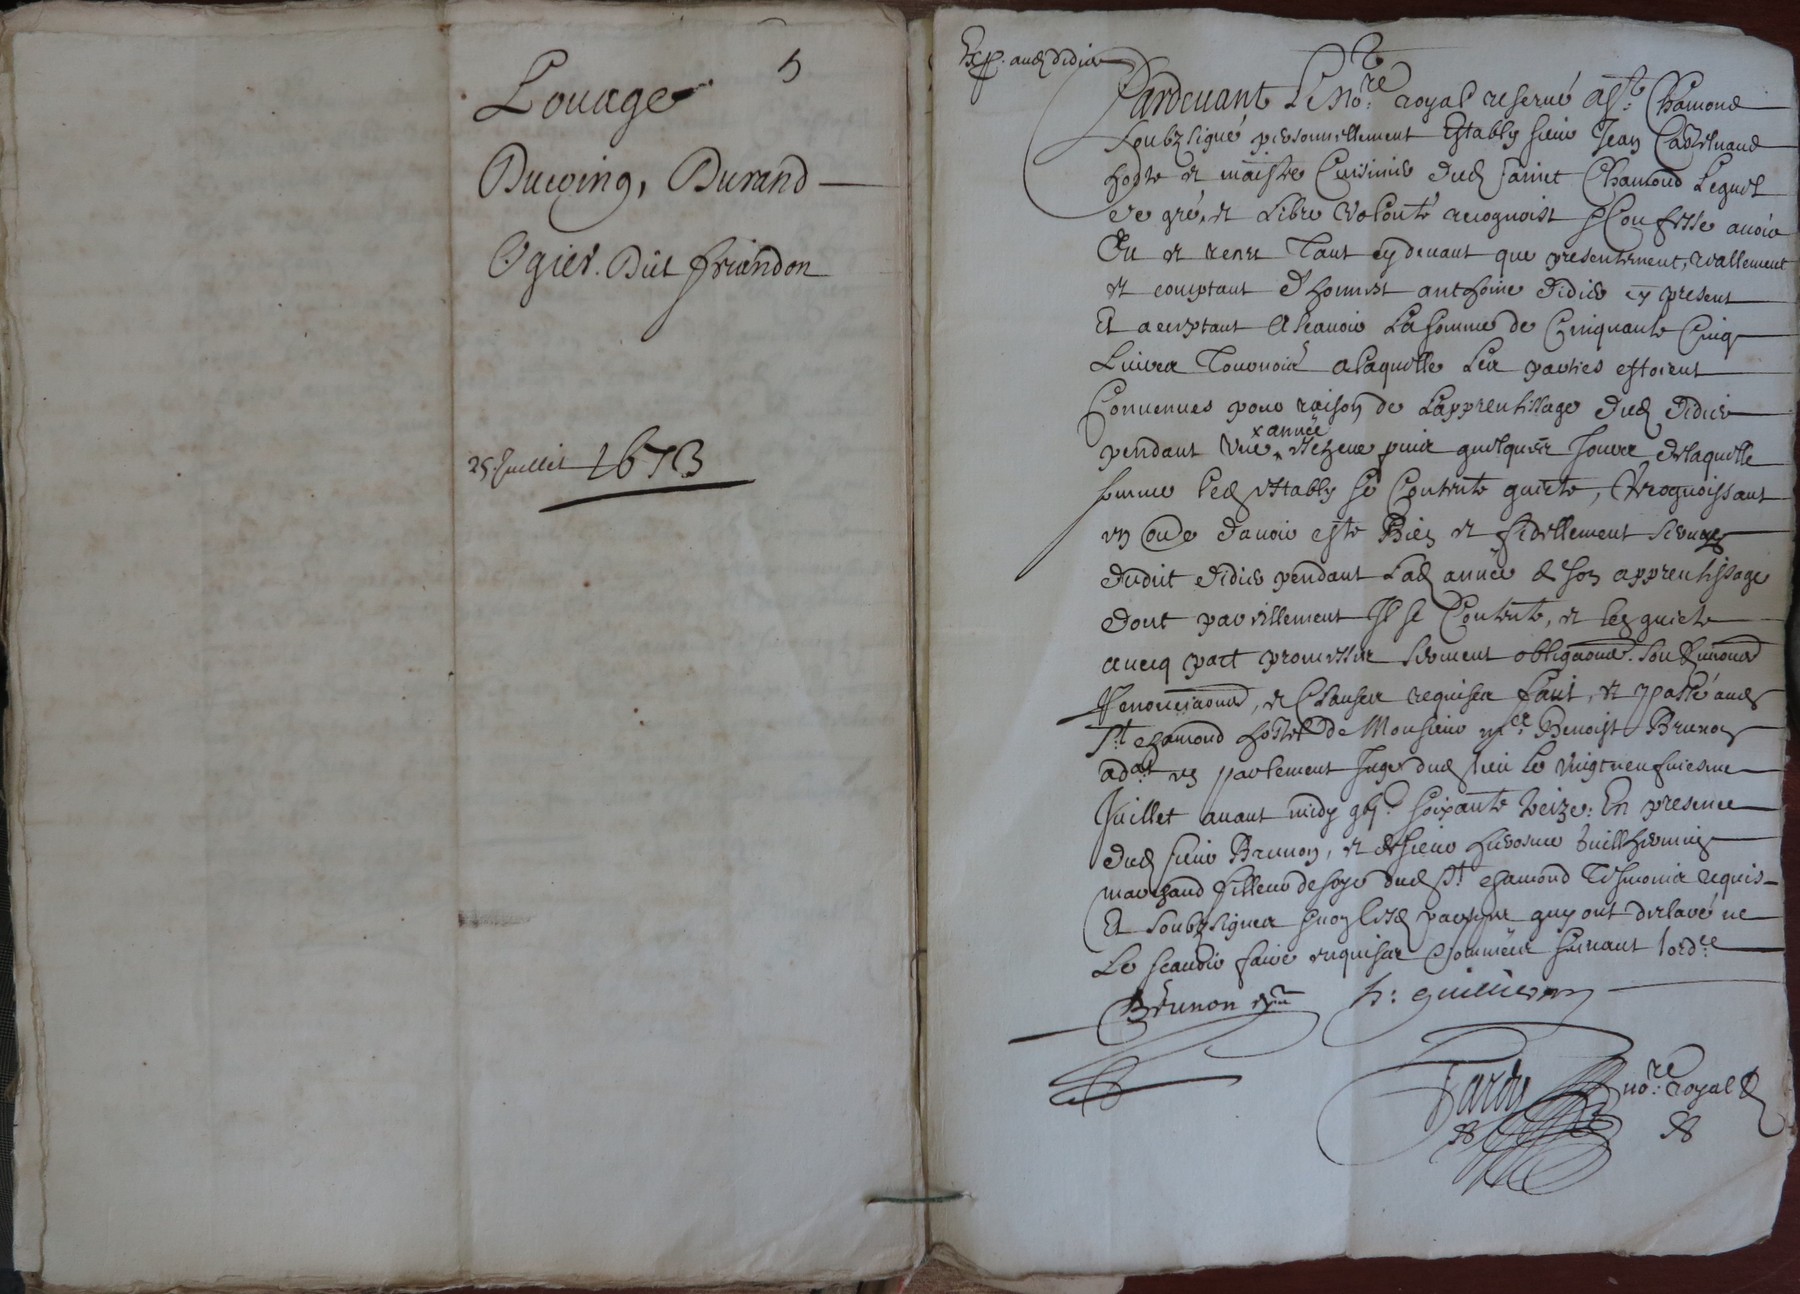 5
Louage
Ducoing, Durand
Ogier. Dit friandon
25 Juillet 1673
Exp. aud didier
Pardevant Le no.re royal reservé a St. Chamond
soubzsigné personnellement Estably sieur Jean
hoste et maistre Cuisinier dud sainct Chamond Lequel
de gré, et Libre volonté recognoist & Confesse avoir
Eu et receu Tant cydevant que presentement, reallement
et comptant d'honnest anthoine didier cy present
Et acceptant Ascavoir La somme de Cinquante Cinq
Livres Tournois a laquelle Les parties estoient
Convenues pour raison de Lapprentissage dud didier
x année
pendant une x et puis quelques Jours de laquelle
somme led estably se Contente quicte, Recognoissant
en oude davoir esté Bien et fidellement
dudit didier pendant Lad année de son apprentissage
dont pareillement Il se Contente, et les quicte
avecq pact promesses serment obligaons. soubzmissons
Renonciaons, et Clauses requises faict, et passé aud
St. chamond hostel de Monsieur me. Benoist Brunon
adat en parlement Juge dud lieu Le vingtneufviesme
Juillet avant midy gbjc. soixante treize. En presence
dud sieur Brunon, et de sieur hierosme Guillhermin
marchand filleur de soye dud St. chamond Tesmoins requis
Et soubzsignes & non lesd parties quy ont declaré ne
Le scavoir faire enquises & sommées suivant lord.ce
Brunon h: guillermin
Tardy no.re royal